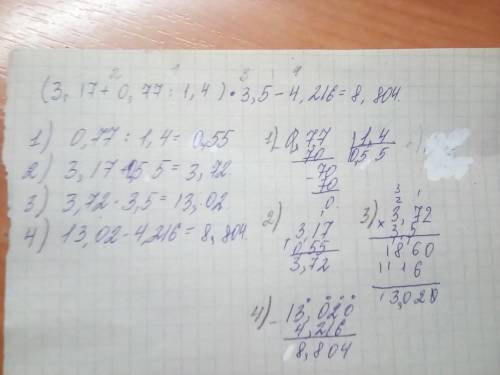 2 1 3 4
(3,17+0,77:1,4)·3,5-4,216=8,804.
1) 0,77:1,4=0,55
2) 3,17+0,55=3,72
3) 3,72·3,5=13,02
4) 13,02-4,216=8,804
1) 0,77 | 1,4
70 0,55
- 70
70
0.
2) 3,17
+ 0,55
3,72
3) 3 1
2
× 3,72
3,5
1860
1116
13,020
4) - 13,020
4,216
8,804